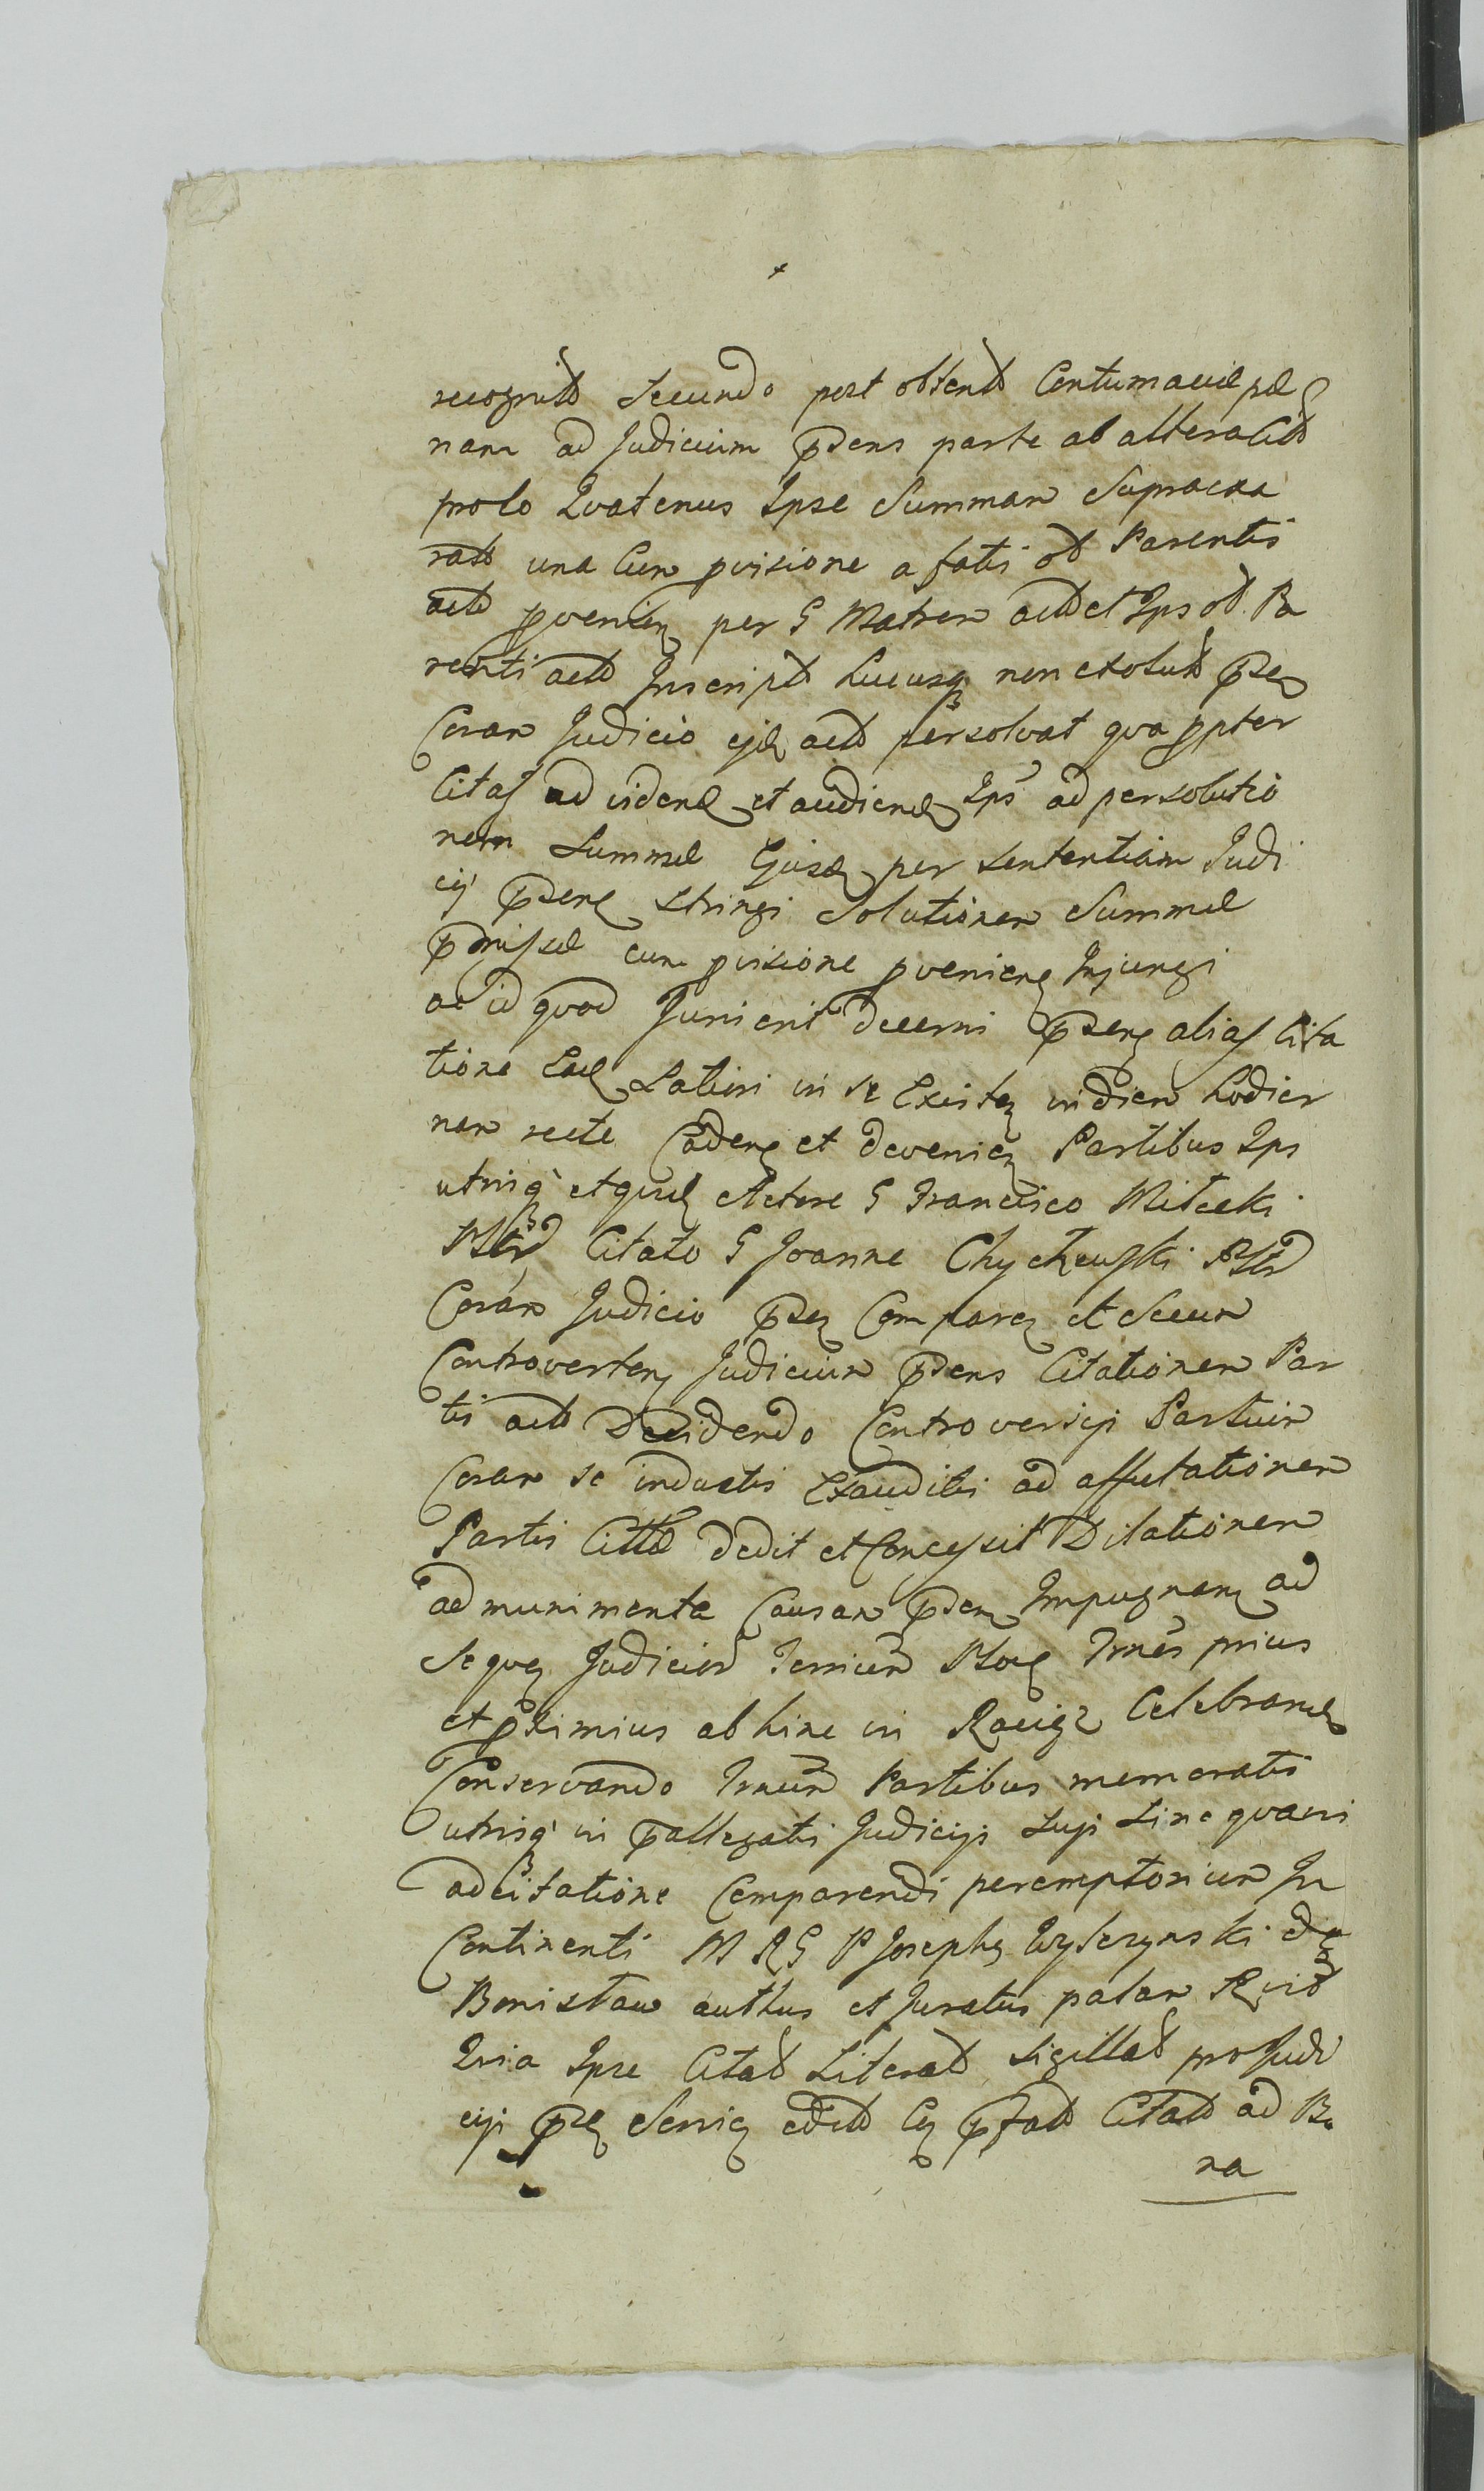 recognit Secundo post obtent Contumaciae pae
nam ad Judicium pdens parte ab altera Citt
prolo Quatenus Ipse Summam Supraexa
rat una Cum pvisione a fatis od Parentis
act pvenien per G Matrem act et Ips od Pa
renti act Inscript hucusq non exolut psen
Coram Judicio ejd act persolvat qva ppter
Citat ad vidend et audiend Ips ad persolutio
nem Summae Ejusd per sententiam Judi
cij psent stringi Solutionem Summae
pmissae cum pvisione pvenient Injungi
ac id quod Juris erit decerni psent alias Cita
tione Ead Latiori in se Existen in diem hodier
nam recte Cadent et devenien Partibus Ips
utrisq et quid Actore G Francisco Milecki
Citato G Joanne Chyczewski
Coram Judicio psen Comparen et Secum
Controverten Judicium psens Citationem Par
tis act Decidendo Controversijs Partium
Coram se inductis Exauditis ad affectationem
Partis Citt dedit et Concessit Dilationem
ad munimenta Causam psen Impugnan ad
Sequen Judicior Terminum prius
et pximius ab hinc in Raciąż Celebrand
Conservando Tnum Partibus memoratis
utrisq in pallegatis Judicijs Suji Sine qvavi
adcitatione Comparendi peremptorium In
Continenti M R G P Joseph Wyszynski de
Bonislaw authus et Juratus palam Recit
Quia Ipse Citat Literat Sigillat pro Judi
cijs psen Servien edit Cz pfat Citat ad Bo
na